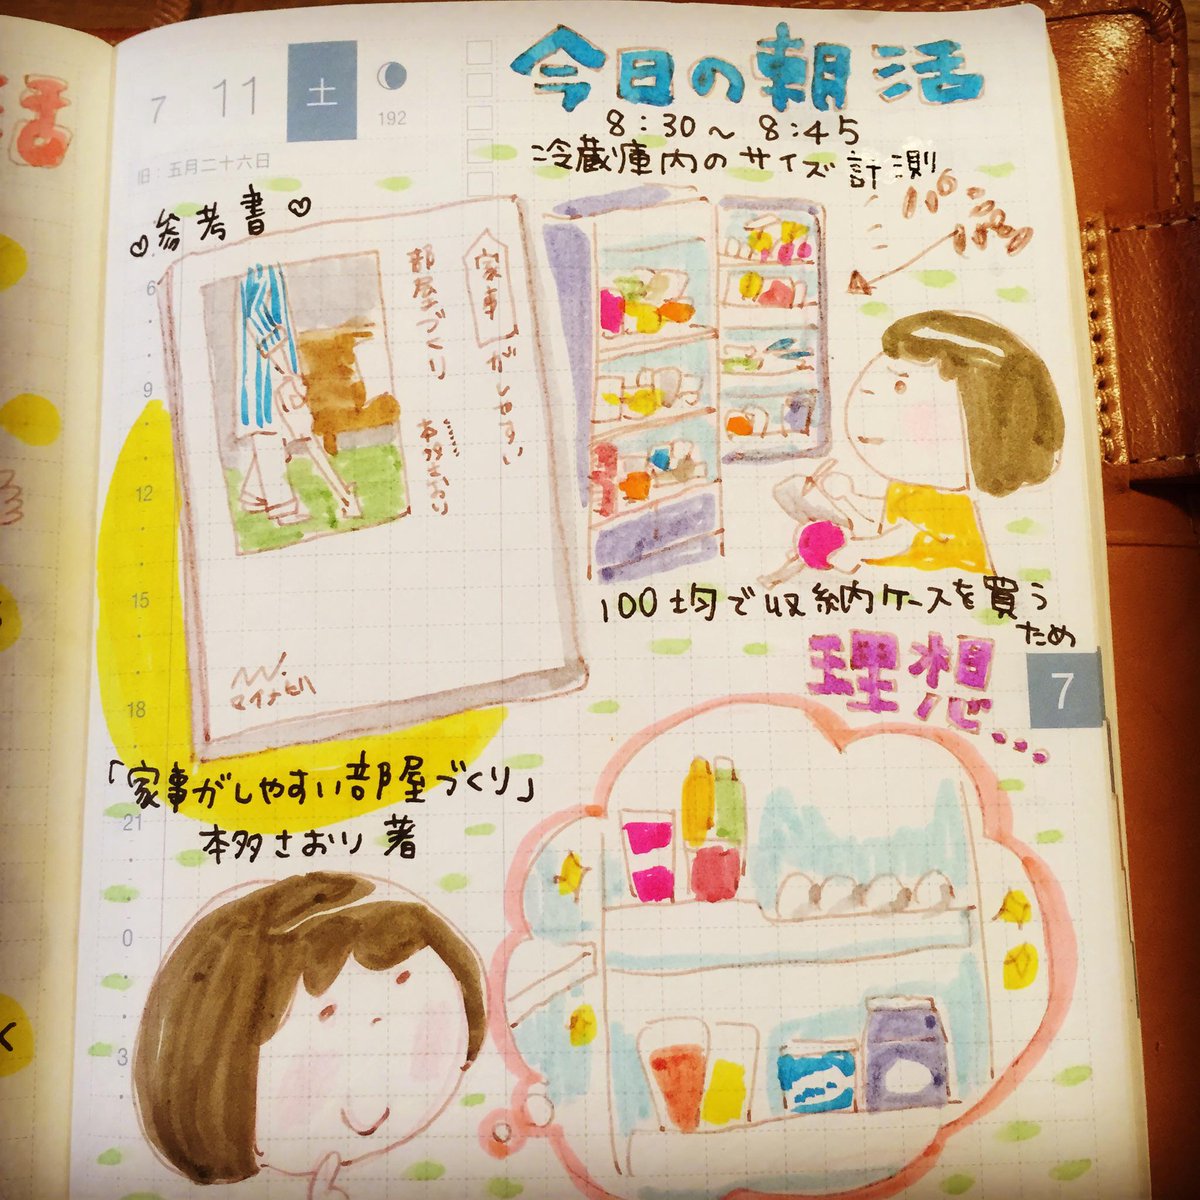 7 11 土
192
旧：五月二十六日
今日の朝活
8:30～8:45
冷蔵庫内のサイズ計測
♡参考書♡
家事がしやすい
部屋づくり
本多さおり
マイナビ
100均で収納ケースを買う
ため
「家事がしやすい部屋づくり」
本多さおり 著
理想…
7
6
9
12
15
18
21
0
3
活
く